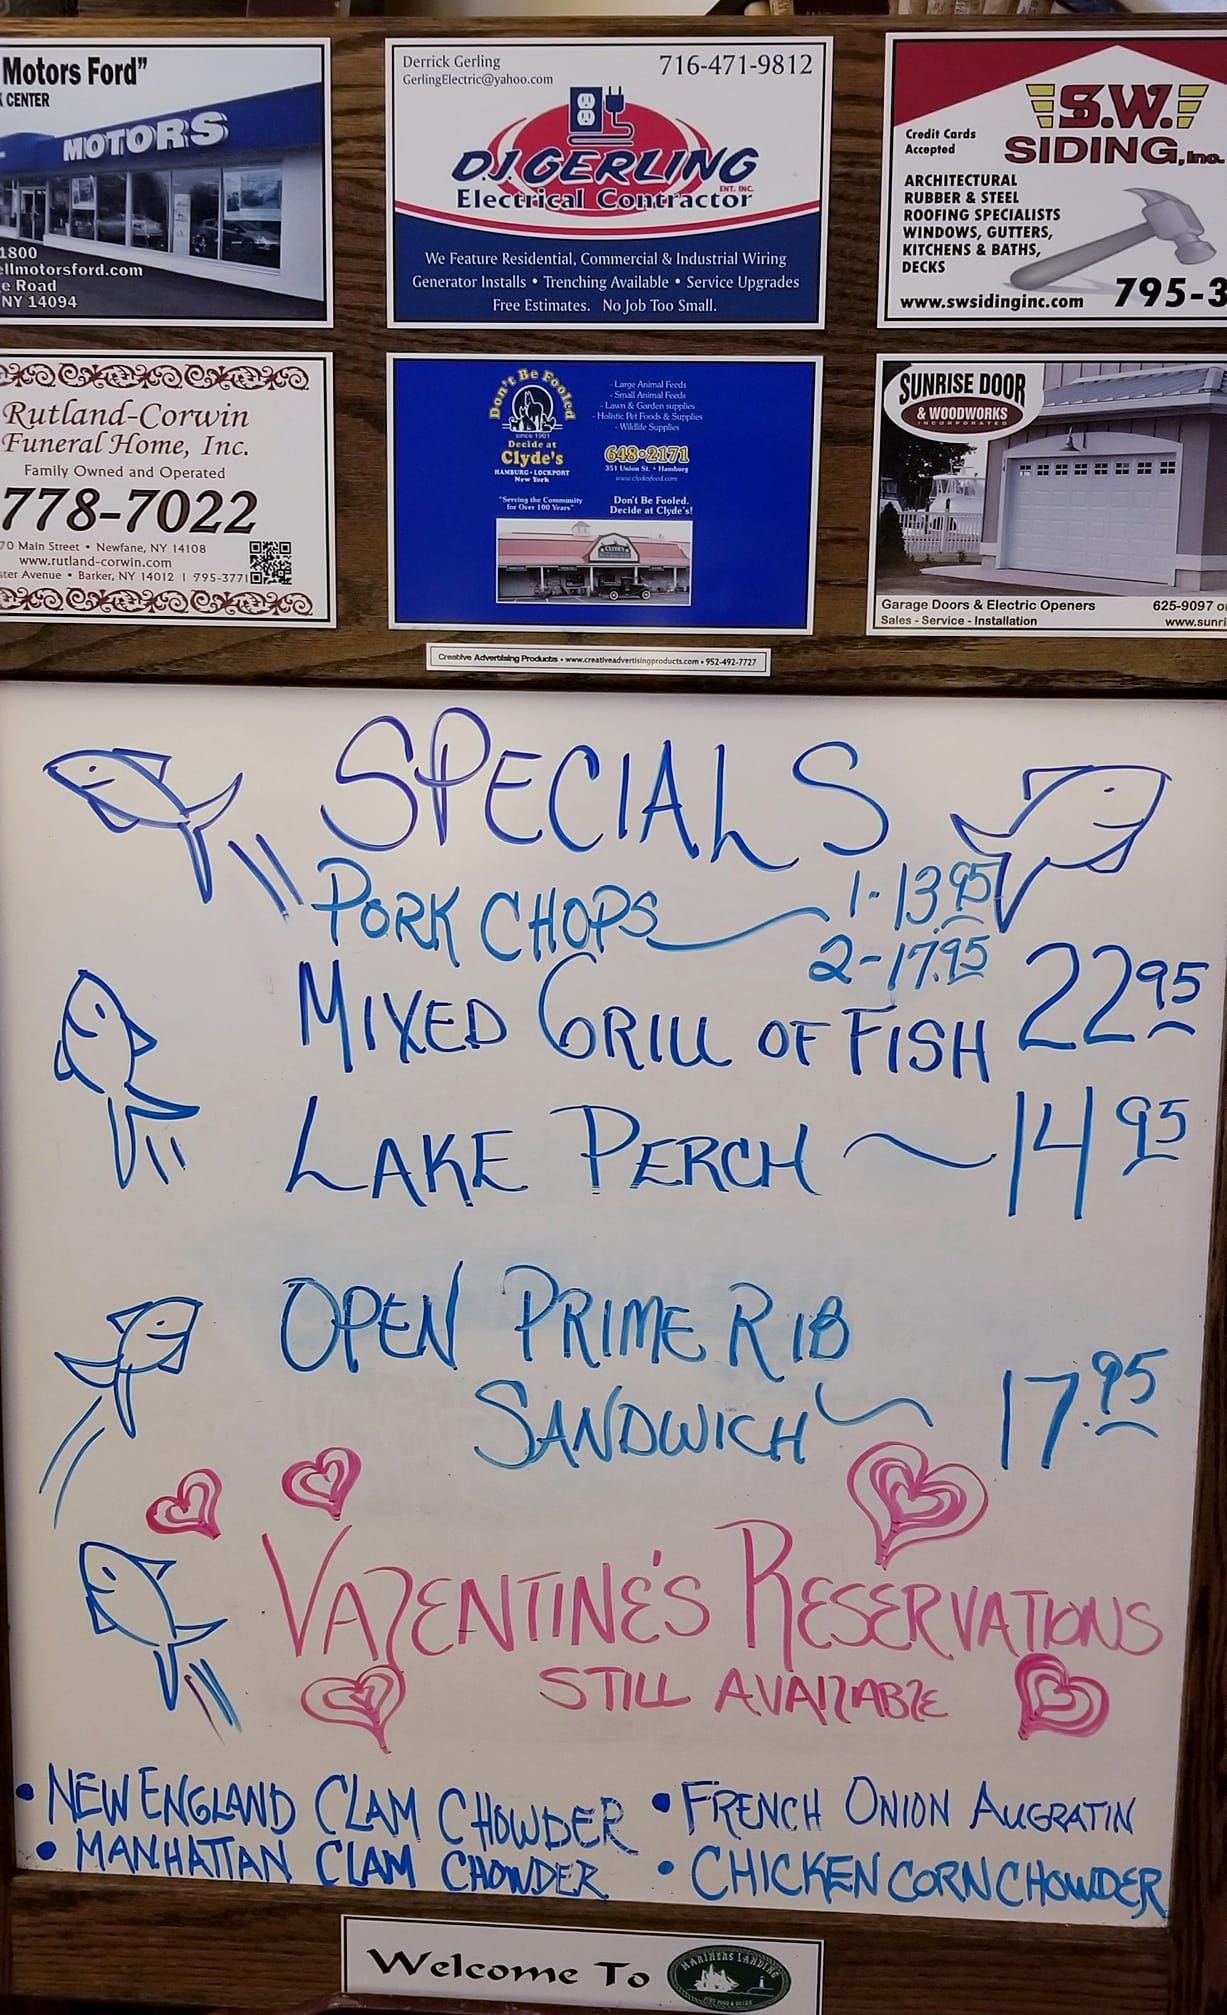 Motors Ford"
CENTER
MOTORS
1800
ellmotorsford.com
e Road
NY 14094
Derrick Gerling
GerlingElectric@yahoo.com
716-471-9812
D.J. GERLING
ENT. INC.
Electrical Contractor
We Feature Residential, Commercial & Industrial Wiring
Generator Installs • Trenching Available • Service Upgrades
Free Estimates. No Job Too Small.
S.W.
SIDING, Inc.
Credit Cards
Accepted
ARCHITECTURAL
RUBBER & STEEL
ROOFING SPECIALISTS
WINDOWS, GUTTERS,
KITCHENS & BATHS,
DECKS
www.swsidinginc.com
795-3
Rutland-Corwin
Funeral Home, Inc.
Family Owned and Operated
778-7022
70 Main Street • Newfane, NY 14108
www.rutland-corwin.com
ster Avenue • Barker, NY 14012 | 795-3771
Don't Be Fooled
since 1901
Decide at
Clyde's
HAMBURG • LOCKPORT
New York
"Serving the Community
for Over 100 Years"
- Large Animal Feeds
- Small Animal Feeds
- Lawn & Garden supplies
- Holistic Pet Foods & Supplies
- Wildlife Supplies
648-2171
351 Union St. • Hamburg
www.clydesfeed.com
Don't Be Fooled.
Decide at Clyde's!
CLYDE'S
SUNRISE DOOR
& WOODWORKS
INCORPORATED
Garage Doors & Electric Openers
Sales - Service - Installation
625-9097 o
www.sunri
Creative Advertising Products • www.creativeadvertisingproducts.com • 952-492-7727
SPECIALS
PORK CHOPS 1-13.95
2-17.95
MIXED GRILL OF FISH 22 95
LAKE PERCH ~ 14 95
OPEN PRIME RIB
SANDWICH ~ 17.95
VALENTINE'S RESERVATIONS
STILL AVAILABLE
• NEW ENGLAND CLAM CHOWDER • FRENCH ONION AUGRATIN
• MANHATTAN CLAM CHOWDER • CHICKEN CORN CHOWDER
Welcome To
MARINERS LANDING